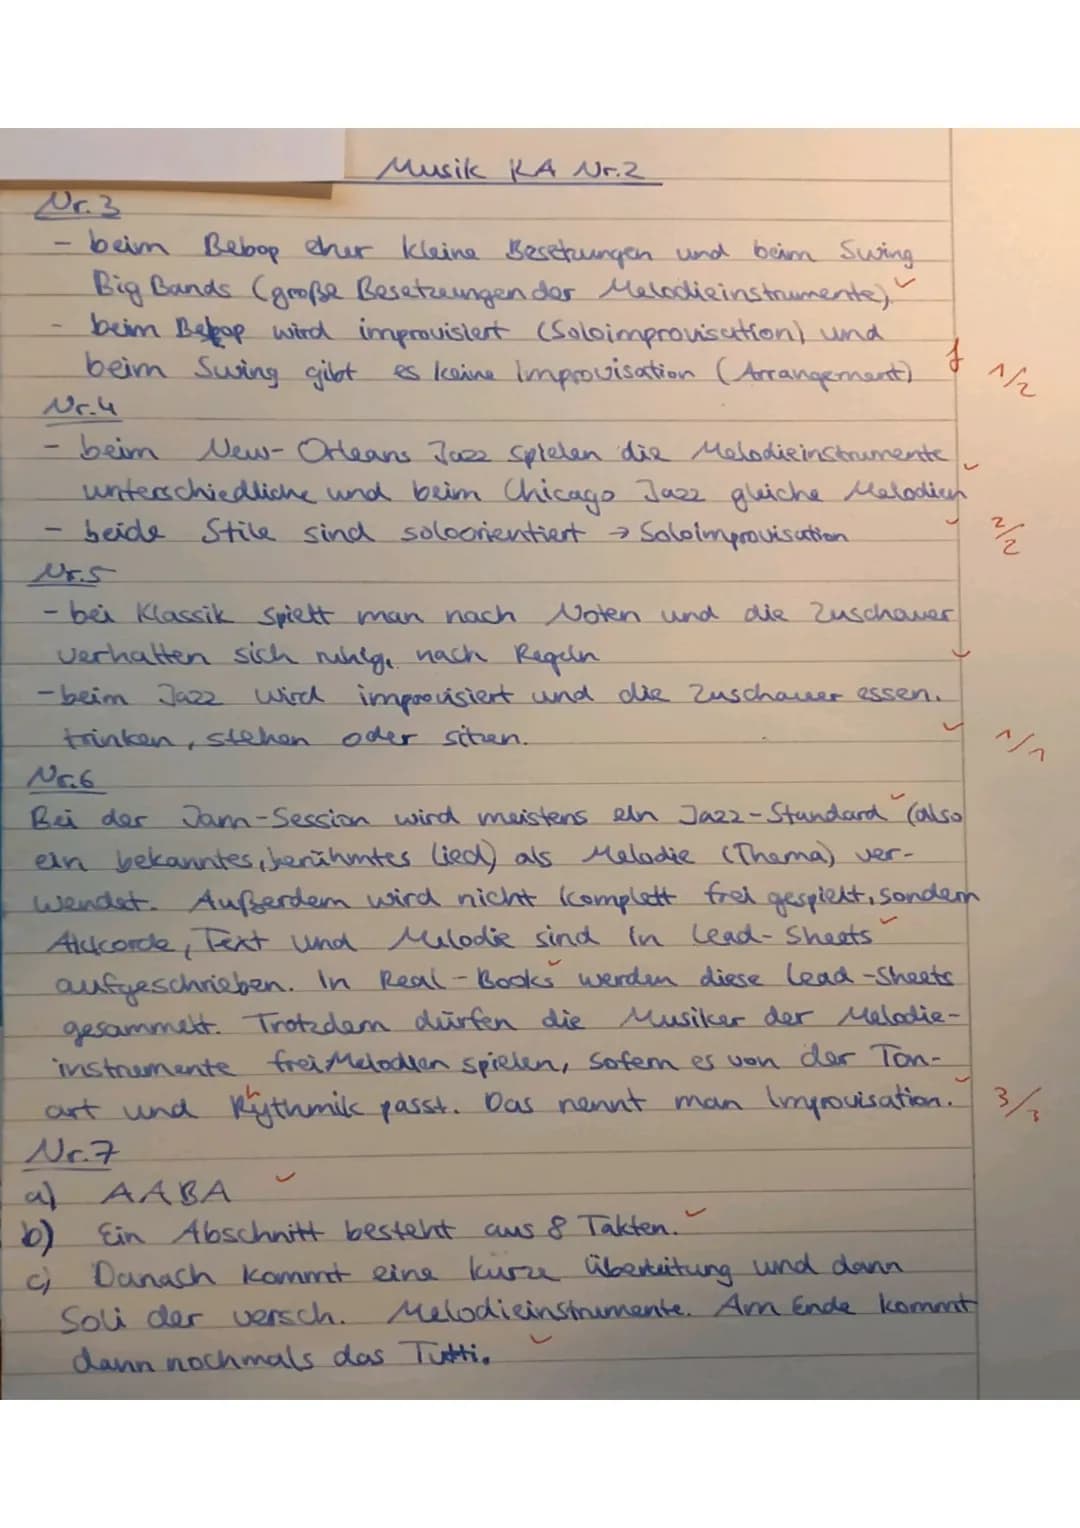 Musik KA Nr.2
Nr.3
- beim Bebop eher kleine Besetzungen und beim Swing
Big Bands (große Besetzungen der Melodieinstrumente). ✓
- beim Bebop wird improvisiert (Soloimprovisation) und
beim Swing gibt es keine Improvisation (Arrangement) f 1/2
Nr.4
- beim New-Orleans Jazz spielen die Melodieinstrumente
unterschiedliche und beim Chicago Jazz gleiche Melodien ✓
- beide Stile sind soloorientiert → Soloimprovisation ✓ 2/2
Nr.5
- bei Klassik spielt man nach Noten und die Zuschauer
verhalten sich ruhig, nach Regeln ✓
- beim Jazz wird improvisiert und die Zuschauer essen,
trinken, stehen oder sitzen. ✓ 1/1
Nr.6
Bei der Jam-Session wird meistens ein Jazz-Standard ✓ (also
ein bekanntes, berühmtes Lied) als Melodie (Thema) ver-
wendet. Außerdem wird nicht komplett frei gespielt, sondern
Akkorde, Text und Melodie sind in Lead-Sheets ✓
aufgeschrieben. In Real-Books ✓ werden diese Lead-Sheets
gesammelt. Trotzdem dürfen die Musiker der Melodie-
instrumente frei Melodien spielen, sofern es von der Ton-
art und Rythmik passt. Das nennt man Improvisation. ✓ 3/3
Nr.7
a) AABA ✓
b) Ein Abschnitt besteht aus 8 Takten. ✓
c) Danach kommt eine kurze Überleitung und dann
Soli der versch. Melodieinstrumente. Am Ende kommt
dann nochmals das Tutti. ✓